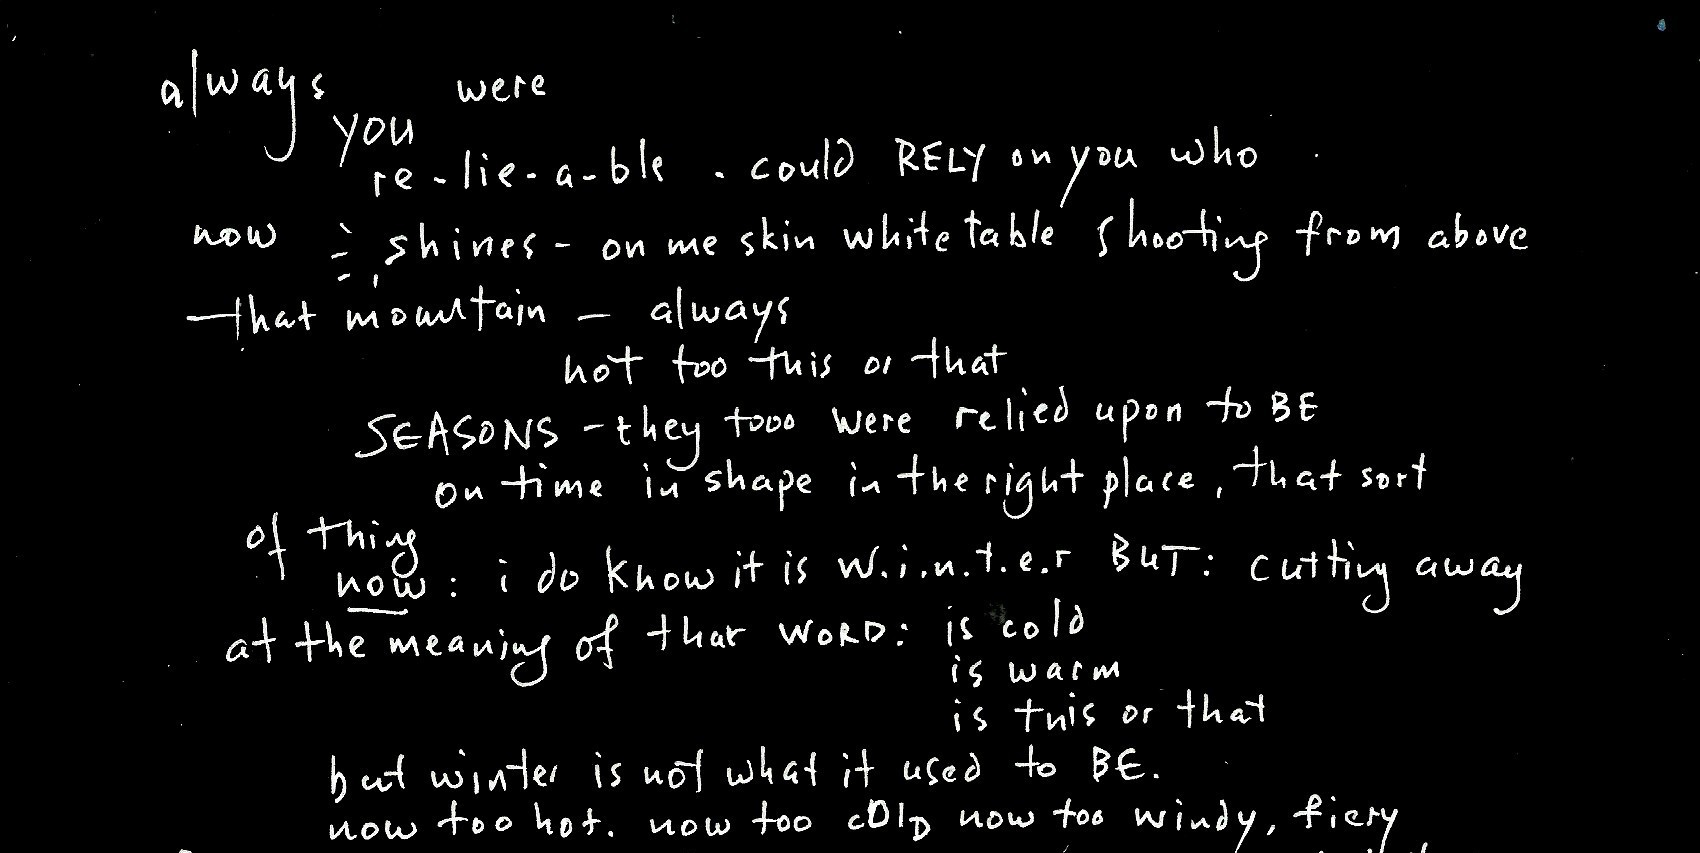 always you were
re-lie-a-ble . could RELY on you who
now shines - on me skin white table shooting from above
that mountain - always
not too this or that
SEASONS - they tooo were relied upon to BE
on time in shape in the right place, that sort
of thing
now: i do know it is w.i.n.t.e.r BUT: cutting away
at the meaning of that WORD: is cold
is warm
is this or that
but winter is not what it used to BE.
now too hot. now too cOlD now too windy, fiery